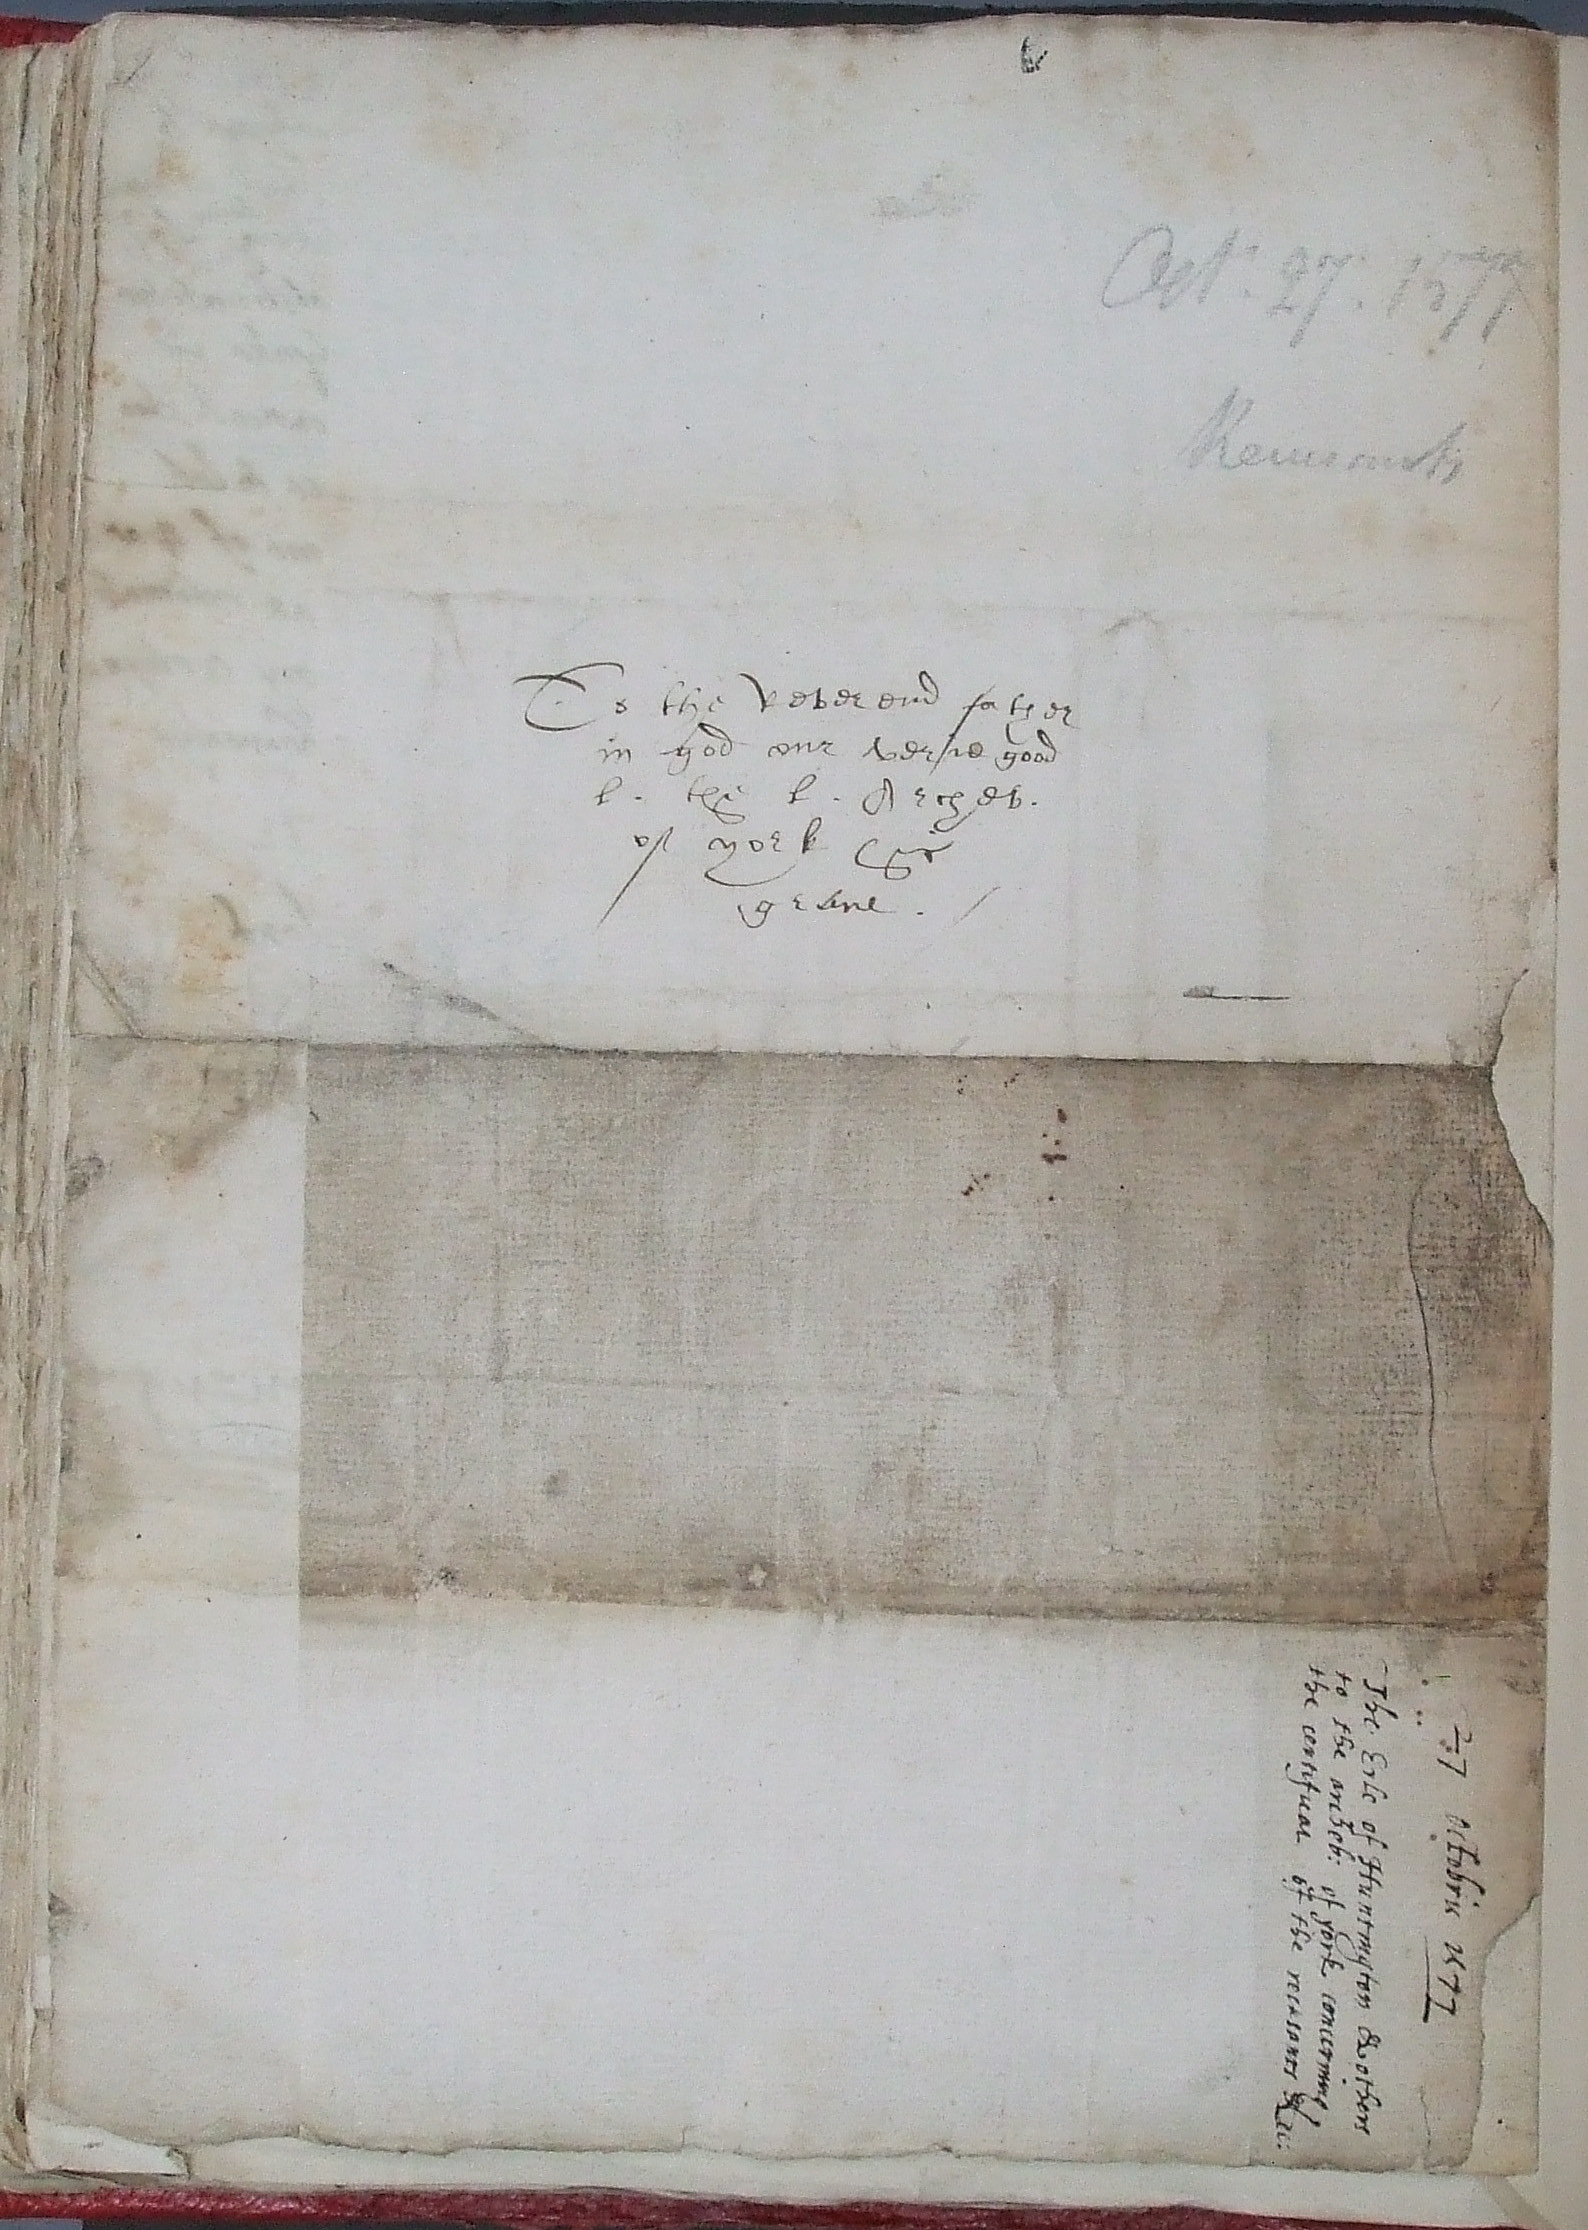 Oct. 27. 1577
To the reverend father
in god our verie good
l. the l. Archeb.
of york his
grace.
27 octobris 1577
The Erle of Huntington & others
to the archeb: of york concerning
the certificat of the recusants &c: